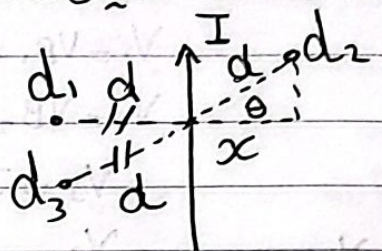 I
d₁ d d d₂
θ
x
d₃ d